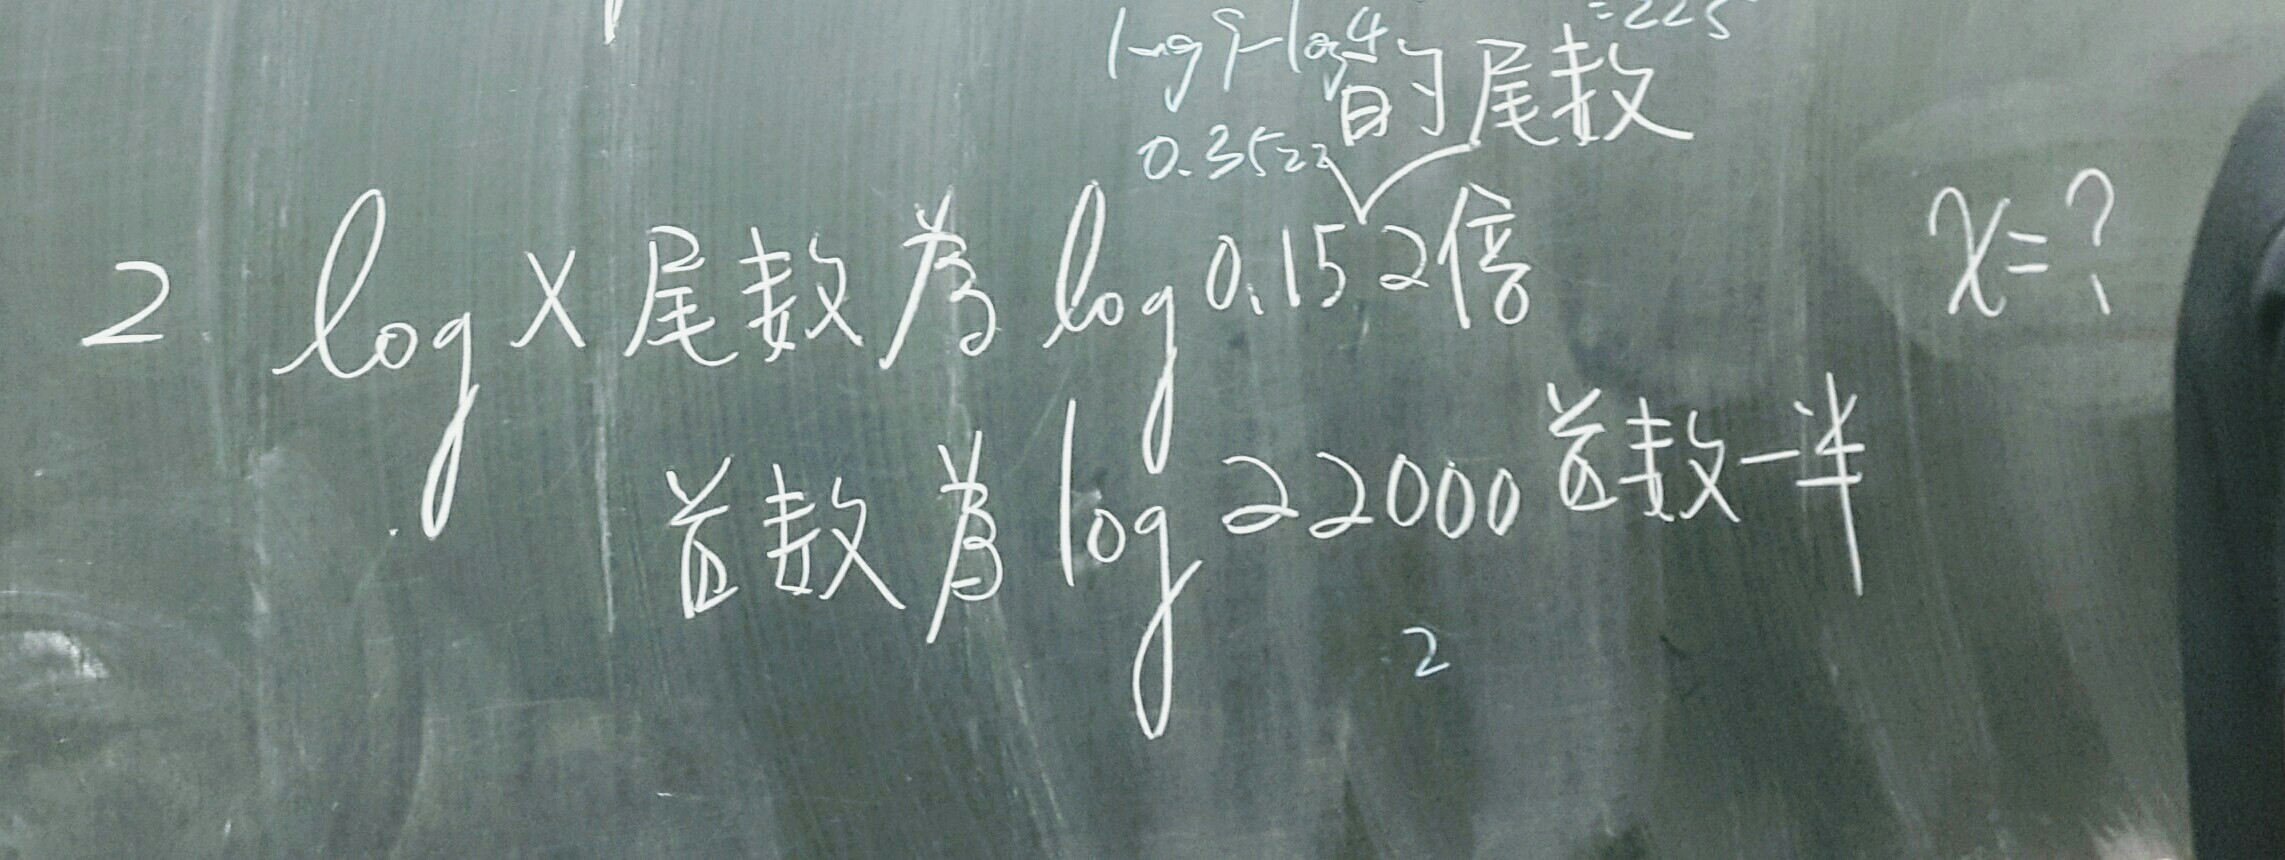 =225
log9-log4
的尾数
0.3522
2 log x 尾数為 log 0.15 2倍 x=?
首数為 log 22000 首数一半
2